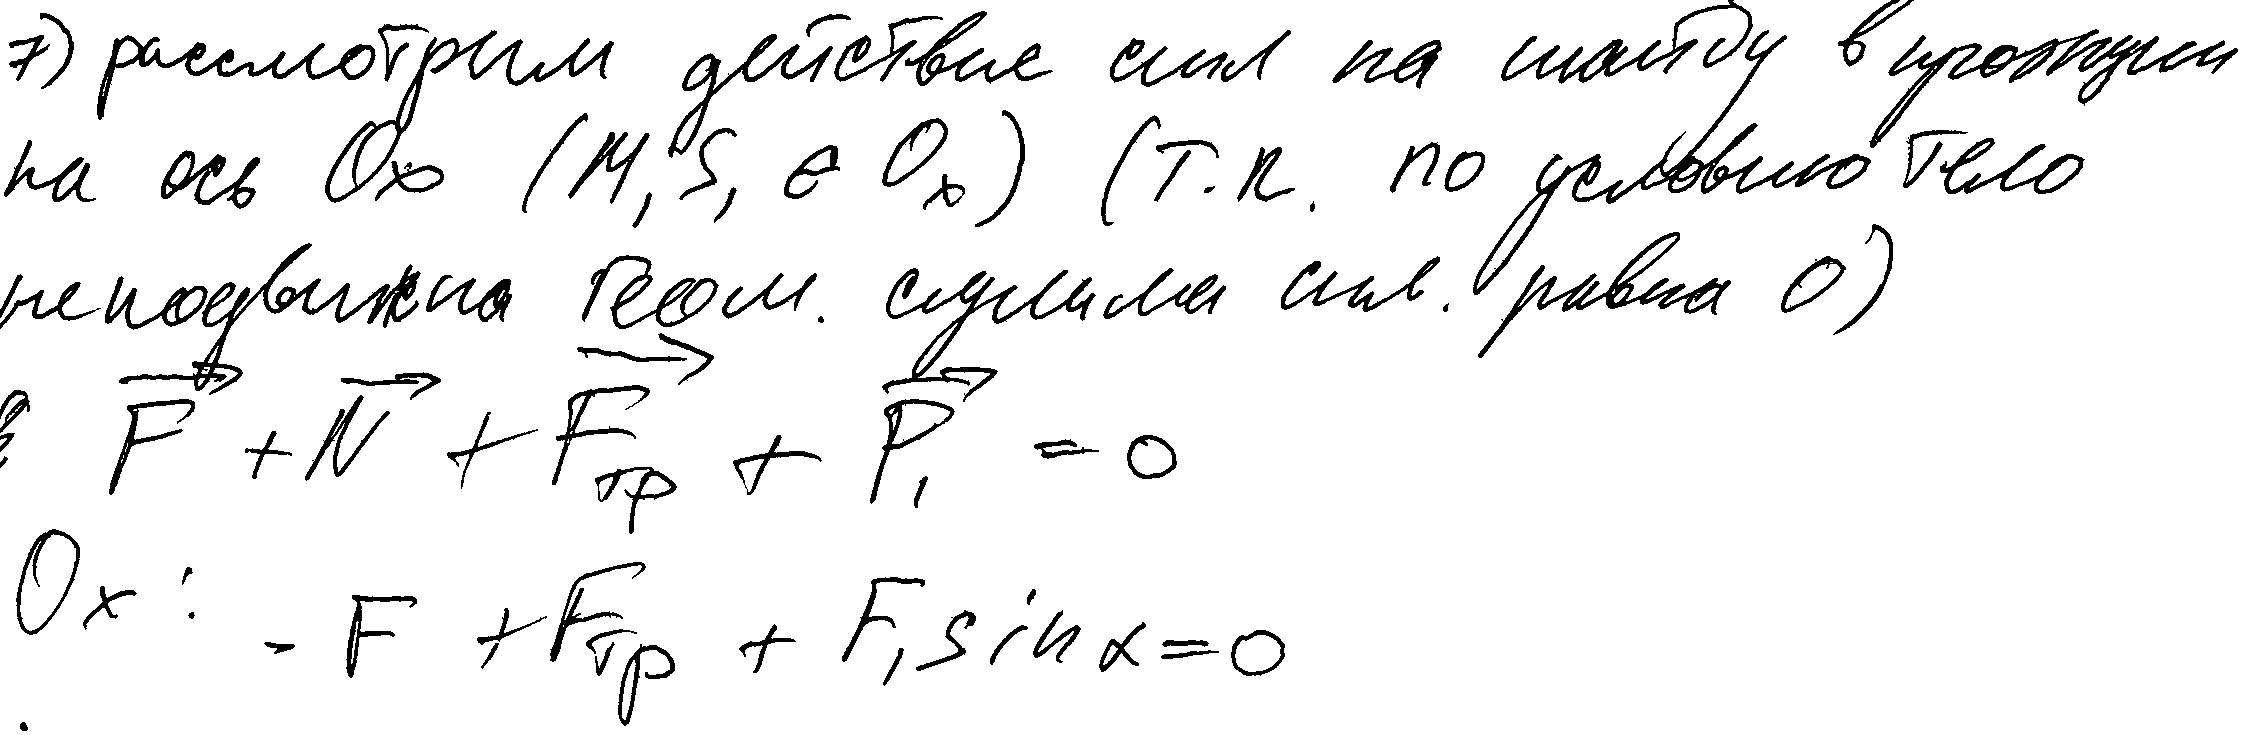 7) рассмотрим действие сил на шайбу в проекции
на ось Ox (M, S, ∈ Ox) (т.к. по условию тело
неподвижна геом. сумма сил. равна 0)
F⃗ + N⃗ + F⃗тр + P⃗₁ = 0
Ox: - F + Fтр + F₁ sin α = 0